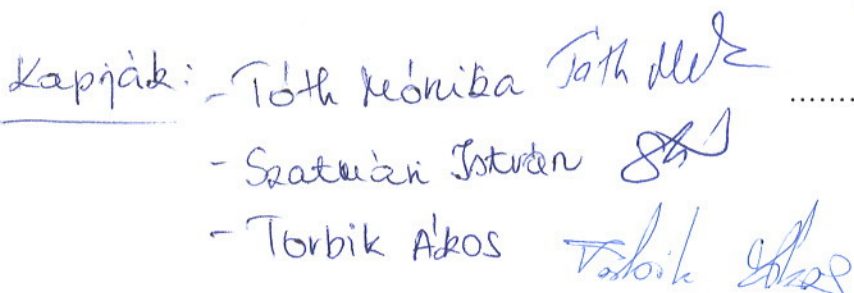 Kapják: - Tóth Mónika Tóth
- Szatmári István
- Torbik Ákos Torbik Ákos